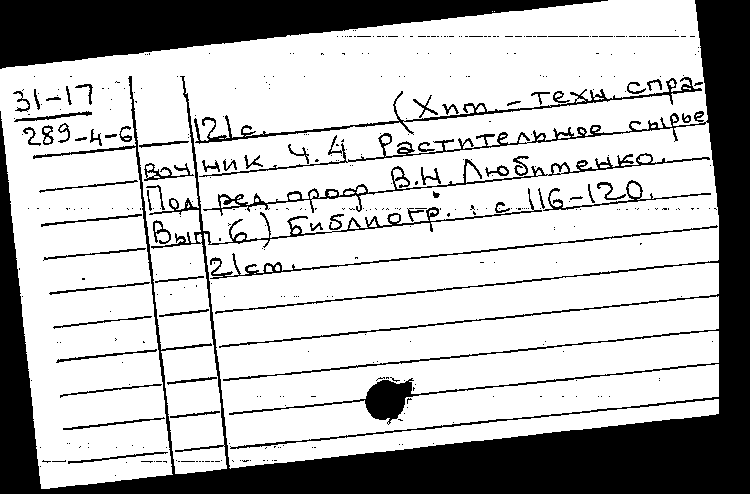 31-17
289-4-6
121 с. (Хим.-техн. спра-
вочник. Ч.4. Растительное сырье
Под ред. проф. В.Н. Любименко.
Вып. 6) Библиогр.: с. 116-120.
21 см.